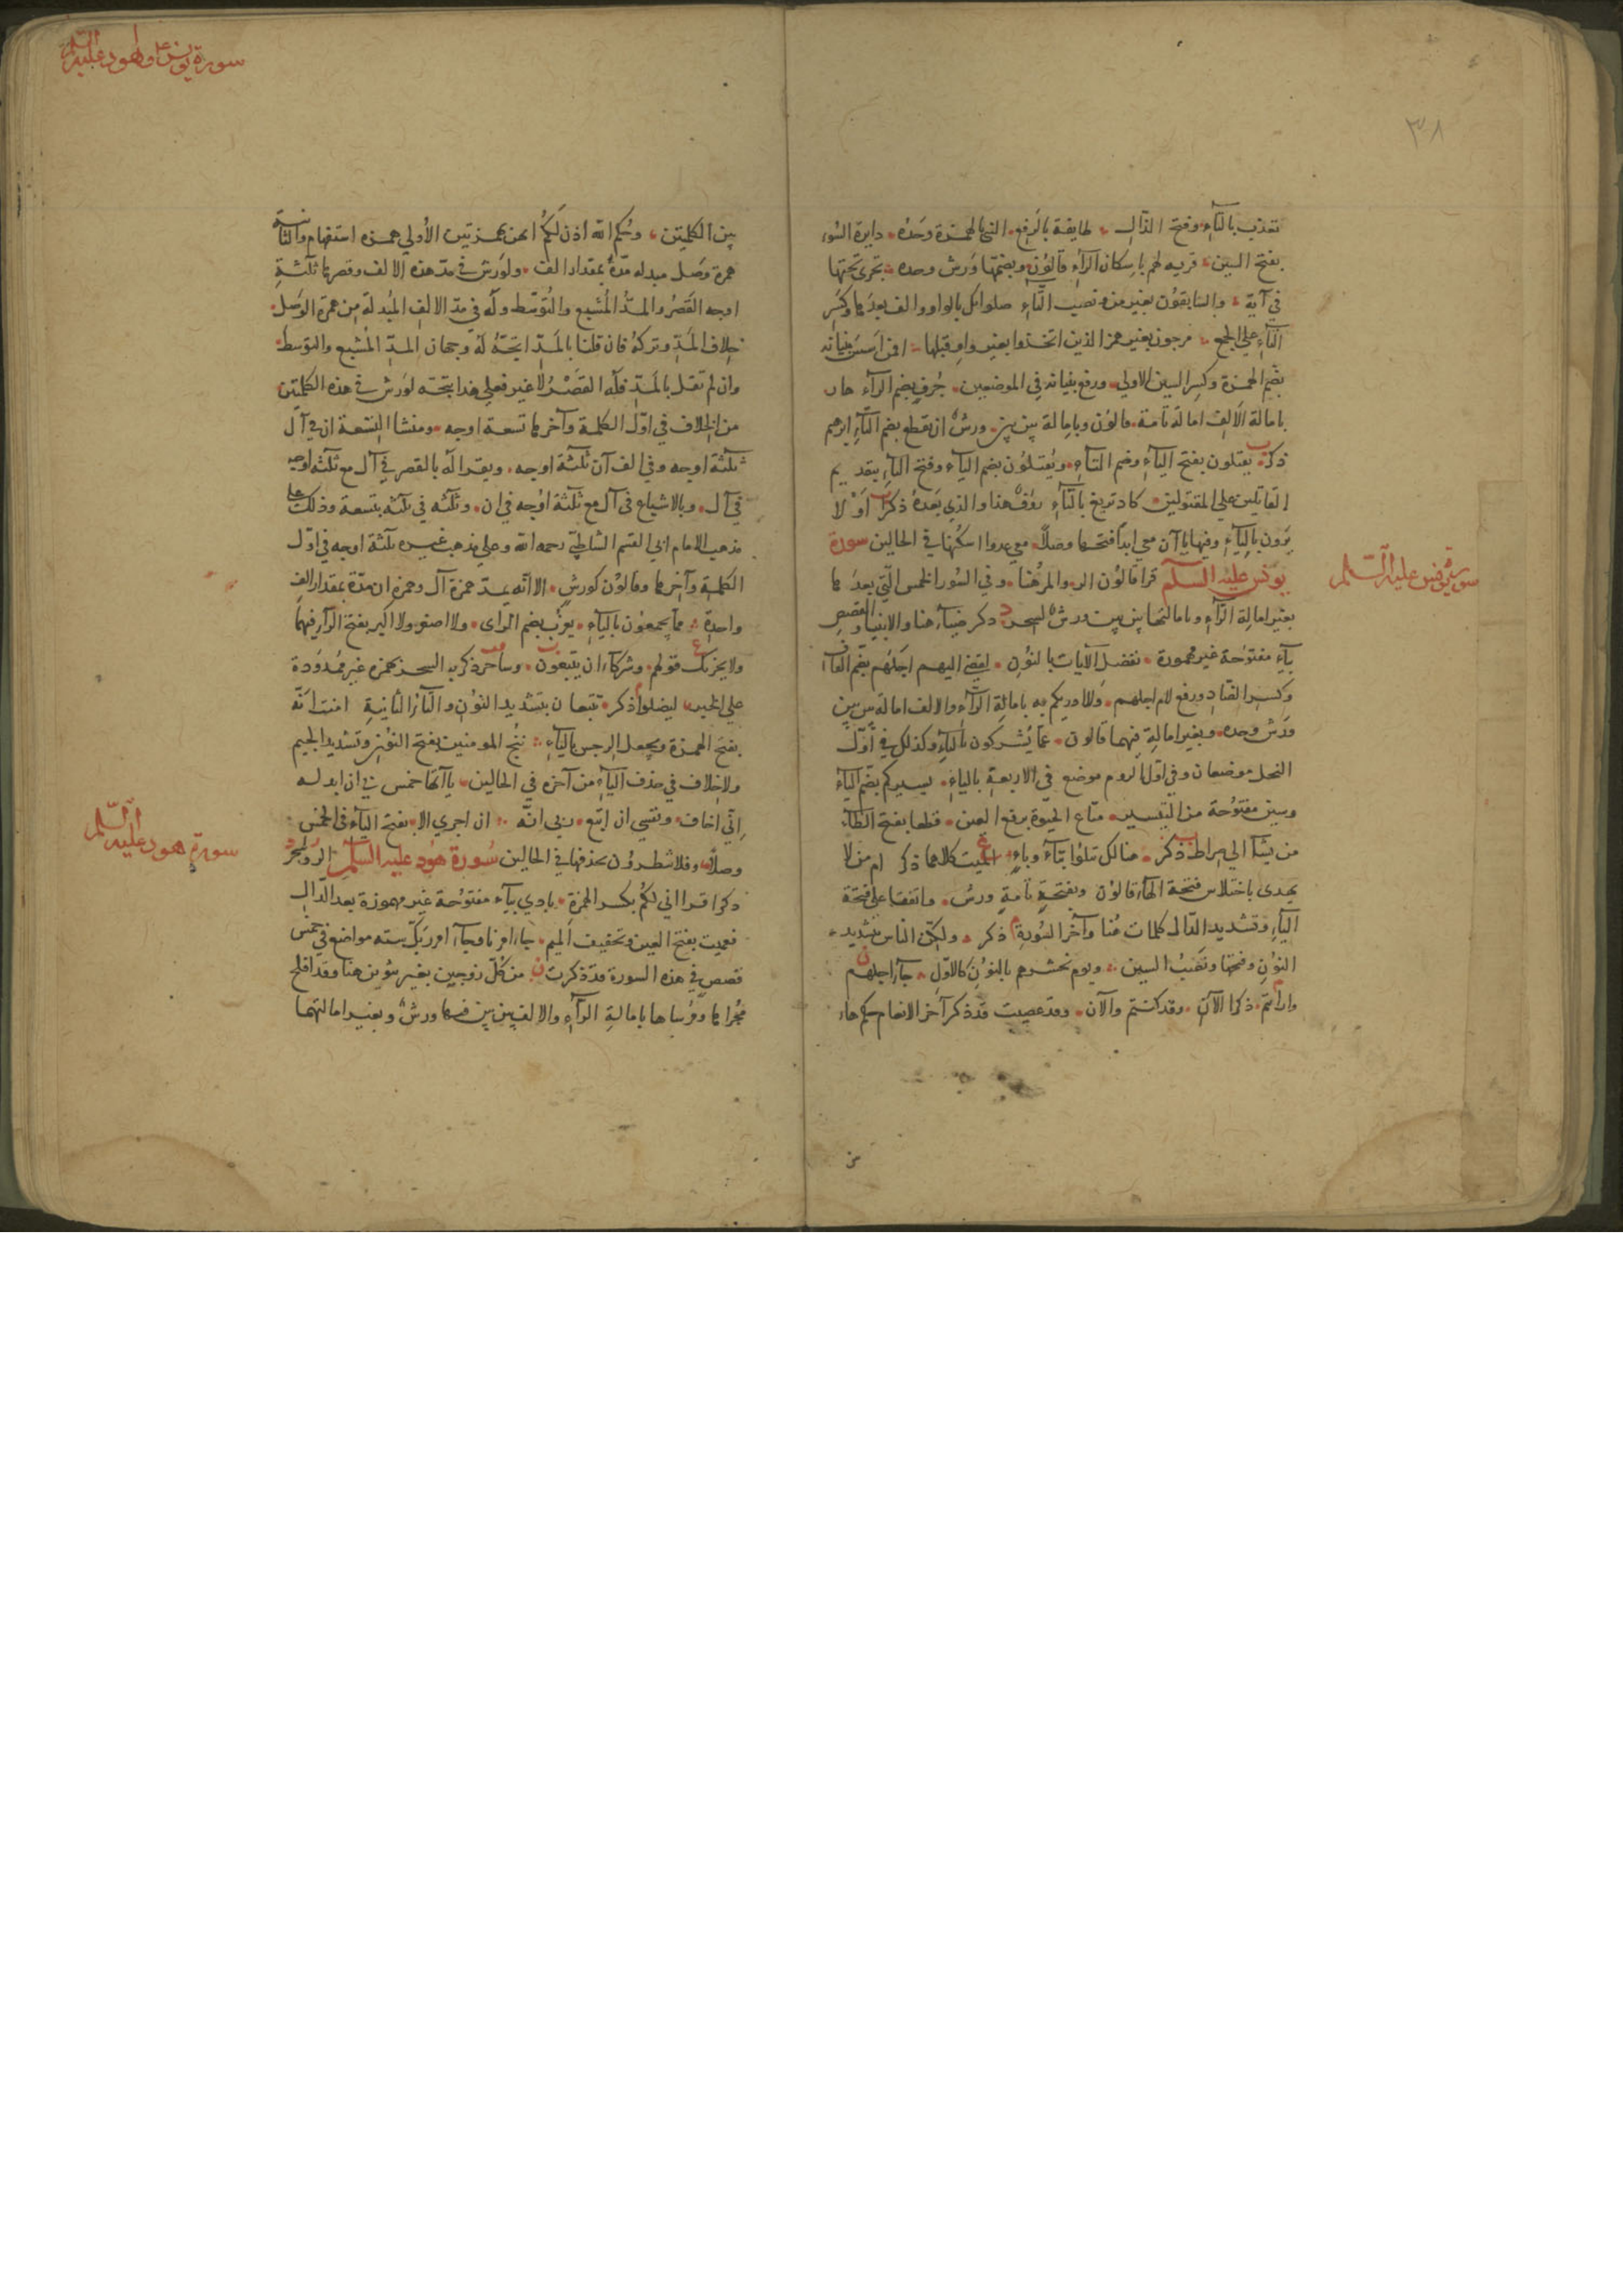 ٣٨
تعذب بالتآء وفتح الذال طايفة بالرفع النسئ بالهمزة وحده دايرة السوء
بفتح السين قربه لهم باسكان الرآء قالون وبضمها ورش وحده تجري تحتها
في آية والسابقون بغير من ونصب التآء صلواتك بالواو والف بعدها وكسر
التآء على الجمع مرجون بغير همز الذين اتخذوا بغير واو قبلها افمن اسس بنيانه
بضم الهمزة وكسر السين الاولى ورفع بنيانه في الموضعين جرف بضم الرآء هار
بامالة الالف امالة تامة قالون وبامالة بين بين ورش ان تقطع بضم التآء ابرهيم
ذكر يقتلون بفتح اليآء وضم التآء ويقتلون بضم اليآء وفتح التآء بتقديم
القاتلين على المقتولين كاد تزيغ بالتآء رؤف هنا والذي بعده ذكرا او لا
يرون باليآء وفيها ياآن معي ابدا فتحها وصلا معي عدوا اسكنها في الحالين سورة
يونس عليه السلم قرا قالون الر والمر هنا وفي السور الخمس التي بعدها
سورة يونس عليه السلم
بغير امالة الرآء وبامالتها بين بين ورش لسحر ذكر ضيآء هنا والانبيا والقصص
بيآء مفتوحة غير مهموزة نفصل الآيات بالنون لقضي اليهم اجلهم بضم القاف
وكسر الضاد ورفع لام اجلهم ولا ادريكم به بامالة الرآء والالف امالة بين بين
ورش وحده وبغير امالة فيهما قالون عما يشركون باليآء وكذلك في اول
النحل موضعان وفي اول الروم موضع في الاربعة باليآء يسيركم بضم اليآء
وسين مفتوحة من التيسير متاع الحيوة برفع العين قطعا بفتح الطآء
من يشآ الى صراط ذكر هنالك تبلوا بتآء وبآء الميت كلاهما ذكر ام من لا
يهدي باختلاس فتحة الهآء قالون وبفتحة تامة ورش واتفقا على فتحة
اليآء وتشديد الدال كلمات هنا وآخر السورة ذكر ولكن الناس بتشديد
النون وفتحها ونصب السين ويوم نحشرهم بالنون كالاول جآء اجلهم
وارايتم ذكرا الآن وقد كنتم والآن وقد عصيت قد ذكر آخر الانعام حكم ها
من
سورة يونس وهود عليه السلم
بين الكلمتين وحكم الله اذن لكم الان بهمزتين الاولى همزه استفهام والثانية
همزة وصل مبدله مدة بمقدار الف ولورش في مد هذه الالف وقصرها ثلثة
اوجه القصر والمد المشبع والتوسط وله في مد الالف المبدلة من همزة الوصل
خلاف المد وتركه فان قلنا بالمد اتجه له وجهان المد المشبع والتوسط
وان لم نقل بالمد فله القصر لا غير فعلى هذا يتجه لورش في هذه الكلمتين
من الخلاف في اول الكلمة وآخرها تسعة اوجه ومنشا التسعة ان في آل
ثلثة اوجه وفي الف آن ثلثة اوجه ويقرا له بالقصر في آل مع ثلثة اوجه
في آل وبالاشباع في آل مع ثلثة اوجه في ان وثلثه في ثلثه بتسعة وذلك على
مذهب الامام ابي القسم الشاطبي رحمه الله وعلى مذهب غيره ثلثة اوجه في اول
الكلمة وآخرها وقالون كورش الا انه يمد همزة آل وهمزه ان مدة بمقدار الف
واحدة مما يجمعون باليآء يعزب بضم الزاى ولا اصغر ولا اكبر بفتح الرآء فيهما
ولا يحزنك قولهم وشركآء ان يتبعون وساحر ذكر به السحر بهمزه غير ممدودة
على الخبر ليضلوا ذكر تتبعان بتشديد النون والتآء الثانية امنت انه
بفتح الهمزة ويجعل الرجس باليآء ننج المومنين بفتح النون وتشديد الجيم
ولا خلاف في حذف اليآء من آخره في الحالين ياآتها خمس لي ان ابدله
اني اخاف ونفسي ان اتبع ربي انه ان اجري الا بفتح اليآء في الخمس
وصلا وفلا تنظرون بحذفها في الحالين سورة هود عليه السلم الر ولسحر
سورة هود عليه السلم
ذكرا قرا اني لكم بكسر الهمزة بادي بيآء مفتوحة غير مهموزة بعد الدال
فعميت بفتح العين وتخفيف الميم جآء امرنا وجآء امر ربك سته مواضع في خمس
قصص في هذه السورة قد ذكرت من كل زوجين بغير تنوين هنا وقد افلح
مجراها ومرساها بامالة الرآء والالف بين بين فيهما ورش وبغير امالتهما